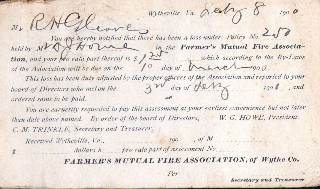 Wytheville, Va. July 8 1908
Mr R. H. Gleaves
You are hereby notified that there has been a loss under Policy No. 250
held by in the Farmer's Mutual Fire Association,
and your pro rata part thereof is $1.25 which according to the By-laws
of the Association will be due on the 10 day of
This loss has been duly adjusted by the proper officers of the Association and reported to your
board of Directors who met on the 3rd day of 1908, and
ordered same to be paid.
You are earnestly requested to pay this assessment at your earliest convenience but not later
than date above named. By order of the board of Directors. W. G. HOWE, President
C. M. TRINKLE, Secretary and Treasurer.
Received Wytheville, Va., 190 of M
$ dollars & pro rata part of assessment No.
FARMER'S MUTUAL FIRE ASSOCIATION, of Wythe Co.
Per
Secretary and Treasurer